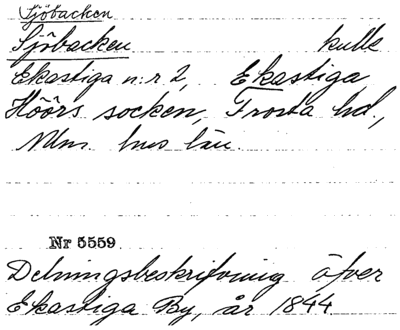 Sjöbacken
Sjöbacken kulle
Ekastiga n:r 2, Ekastiga
Höörs socken, Frosta hd.,
Mlm. hus län.
Nr 5559
Delningsbeskrifvning öfver
Ekastiga By, år 1844